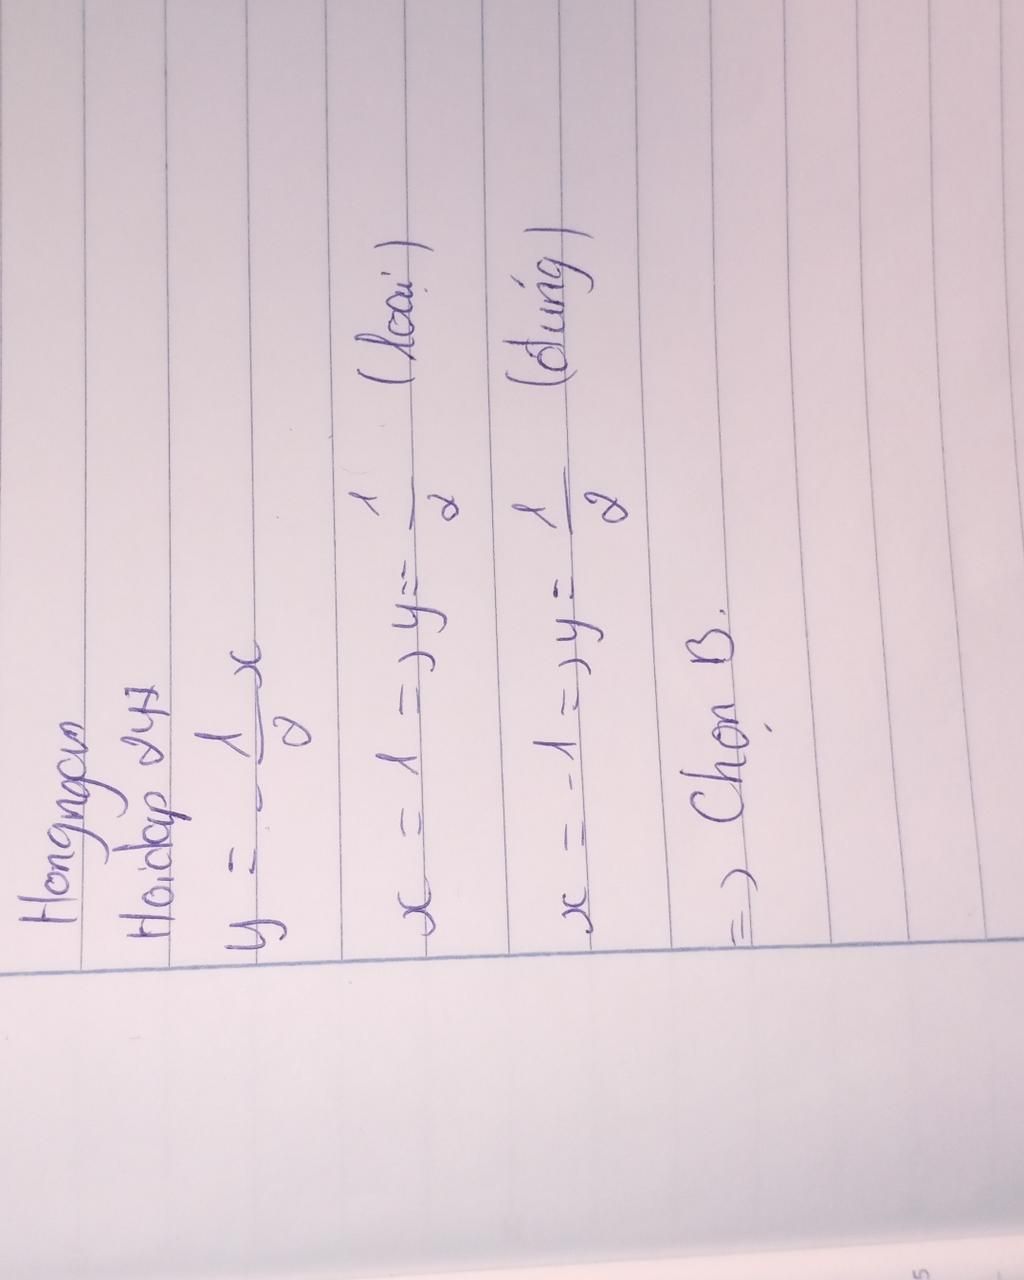 Hongngan
Hoidap 247
y = -1/2 x
x = 1 => y = 1/2 (loại)
x = -1 => y = 1/2 (đúng)
=> Chọn B.
5